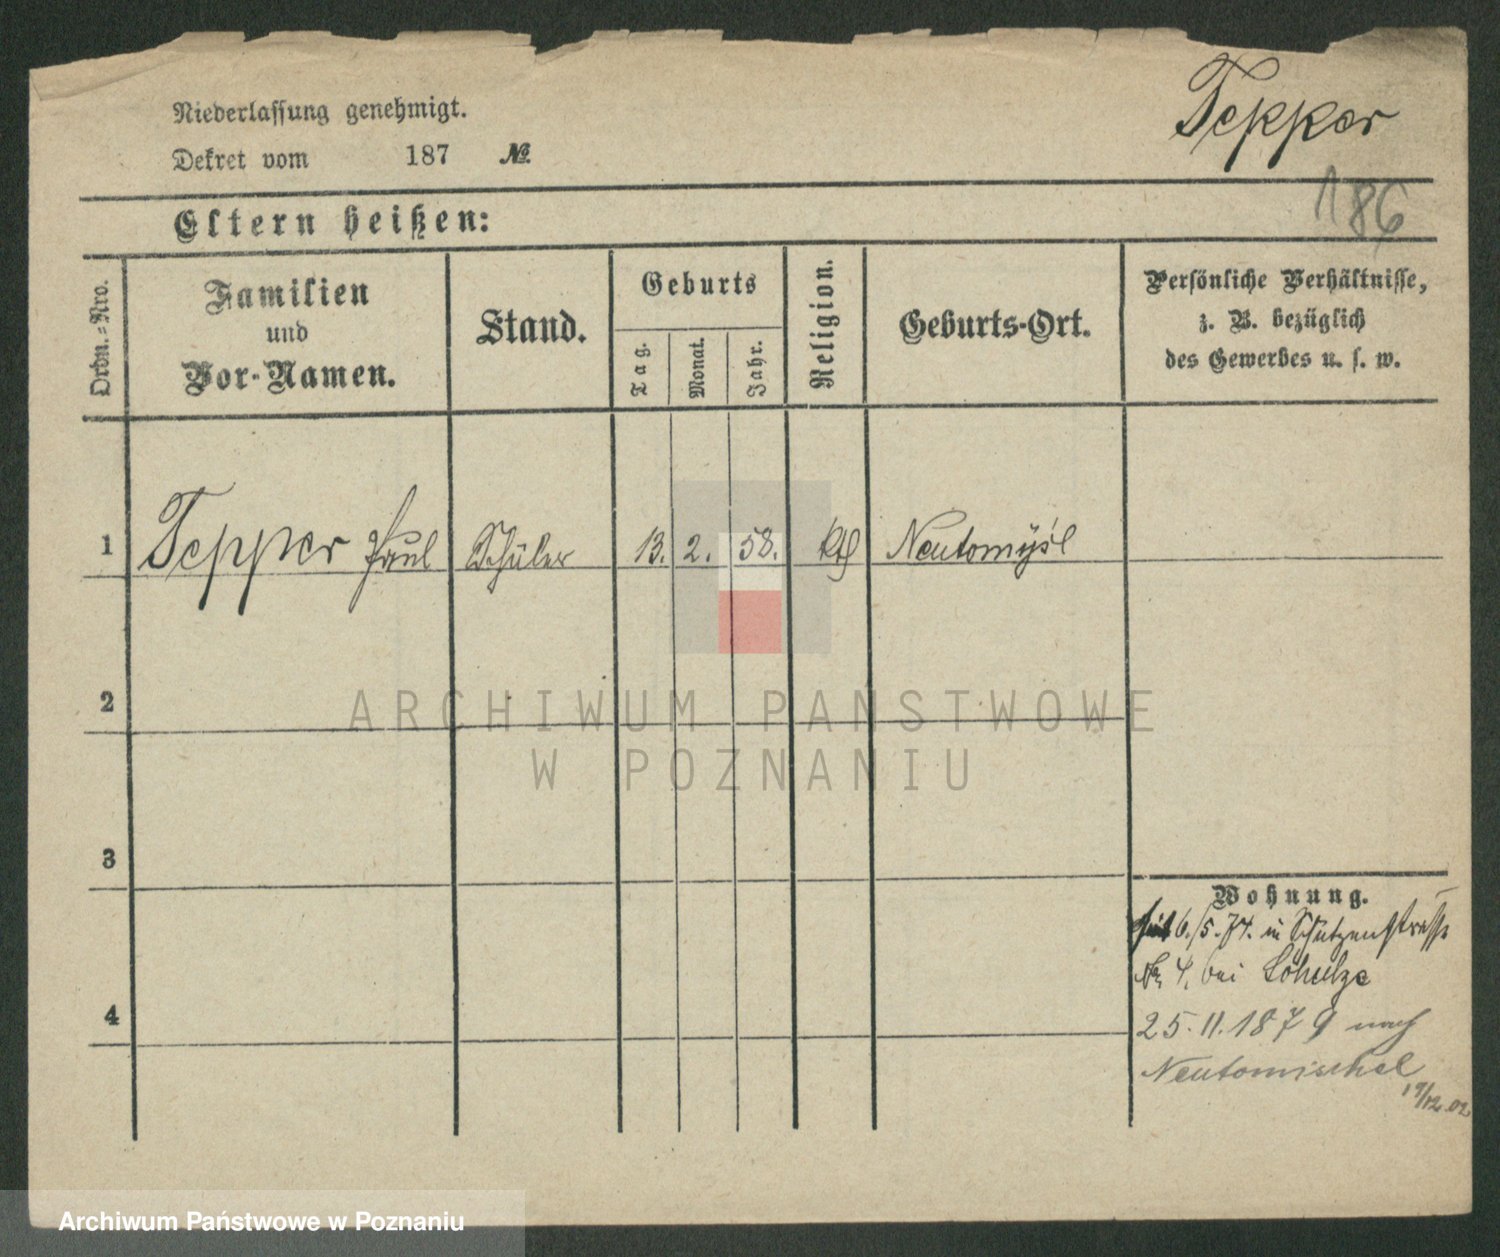 Niederlassung genehmigt.
Tepper
Dekret vom 187 №
186
Eltern heißen:
Ordn.-Nro.
Familien
und
Vor-Namen.
Stand.
Geburts
Tag.
Monat.
Jahr.
Religion.
Geburts-Ort.
Persönliche Verhältnisse,
z. B. bezüglich
des Gewerbes u. s. w.
1 Tepper Paul Schüler 13. 2. 58. kth Neutomyśl
2
ARCHIWUM PAŃSTWOWE
W POZNANIU
3
Wohnung.
seit 6./5.74. in Schützenstrasse
No 4. bei Schulze
4
25.11.1879 nach
Neutomischel
17/12.02
Archiwum Państwowe w Poznaniu